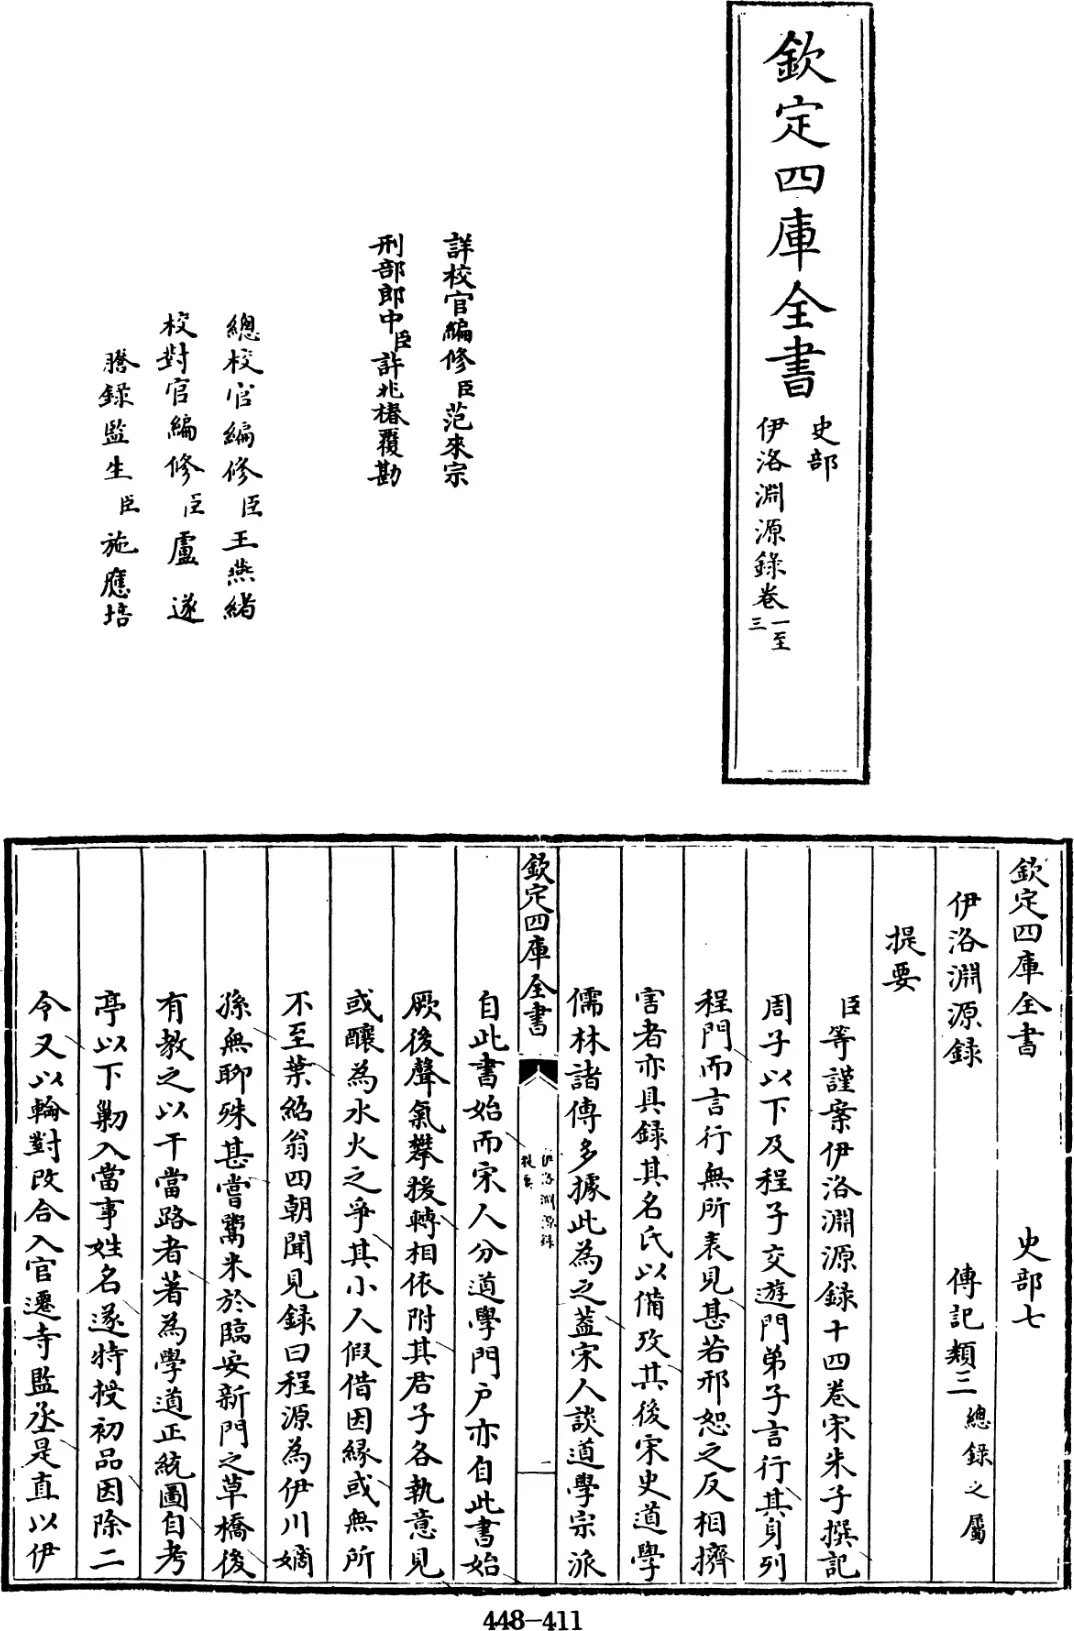 欽定四庫全書
史部
伊洛淵源錄卷一至三
詳校官編修臣范來宗
刑部郎中臣許兆椿覆勘
總校官編修臣王燕緒
校對官編修臣盧遂
謄錄監生臣施應培
欽定四庫全書 史部七
伊洛淵源録 傳記類三總録之屬
提要
臣等謹案伊洛淵源録十四卷宋朱子撰記
周子以下及程子交遊門弟子言行其身列
程門而言行無所表見甚若邢恕之反相擠
害者亦具録其名氏以備攷其後宋史道學
儒林諸傳多據此為之葢宋人談道學宗派
欽定四庫全書
伊洛淵源録
提要
二
自此書始而宋人分道學門户亦自此書始
厥後聲氣攀援轉相依附其君子各執意見
或釀為水火之爭其小人假借因緣或無所
不至葉紹翁四朝聞見録曰程源為伊川嫡
孫無聊殊甚嘗鬻米於臨安新門之草橋後
有教之以干當路者著為學道正統圖自考
亭以下勦入當事姓名遂特授初品因除二
令又以輪對改合入官遷寺監丞是直以伊
448-411